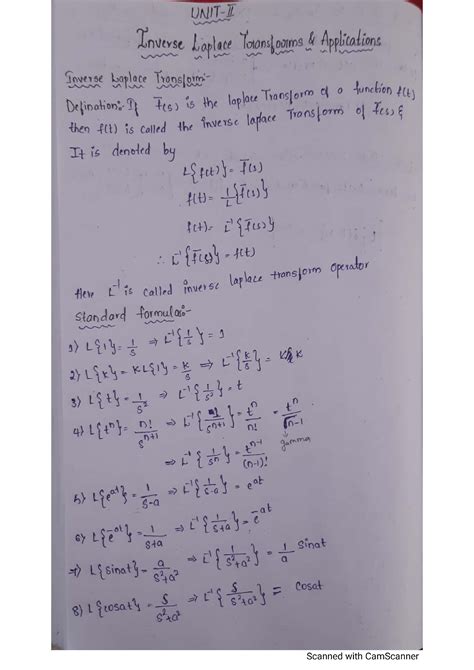 UNIT-II
Inverse Laplace Transforms & Applications
Inverse Laplace Transform:-
Defination:- If f̅(s) is the laplace Transform of a function f(t)
then f(t) is called the inverse laplace Transform of f̅(s) &
It is denoted by
L{f(t)} = f̅(s)
f(t) = 1/L {f̅(s)}
f(t) = L⁻¹{f̅(s)}
∴ L⁻¹{f̅(s)} = f(t)
Here L⁻¹ is called inverse laplace transform operator
Standard formulas:-
1) L{1} = 1/s ⇒ L⁻¹{1/s} = 1
2) L{k} = kL{1} = k/s ⇒ L⁻¹{k/s} = k
3) L{t} = 1/s² ⇒ L⁻¹{1/s²} = t
4) L{tⁿ} = n!/sⁿ⁺¹ ⇒ L⁻¹{1/sⁿ⁺¹} = tⁿ/n! = tⁿ/Γn-1
gamma
⇒ L⁻¹{1/sⁿ} = tⁿ⁻¹/(n-1)!
5) L{e^at} = 1/(s-a) ⇒ L⁻¹{1/(s-a)} = e^at
6) L{e^-at} = 1/(s+a) ⇒ L⁻¹{1/(s+a)} = e^-at
7) L{sinat} = a/(s²+a²) ⇒ L⁻¹{1/(s²+a²)} = 1/a sinat
8) L{cosat} = s/(s²+a²) ⇒ L⁻¹{s/(s²+a²)} = cosat
Scanned with CamScanner